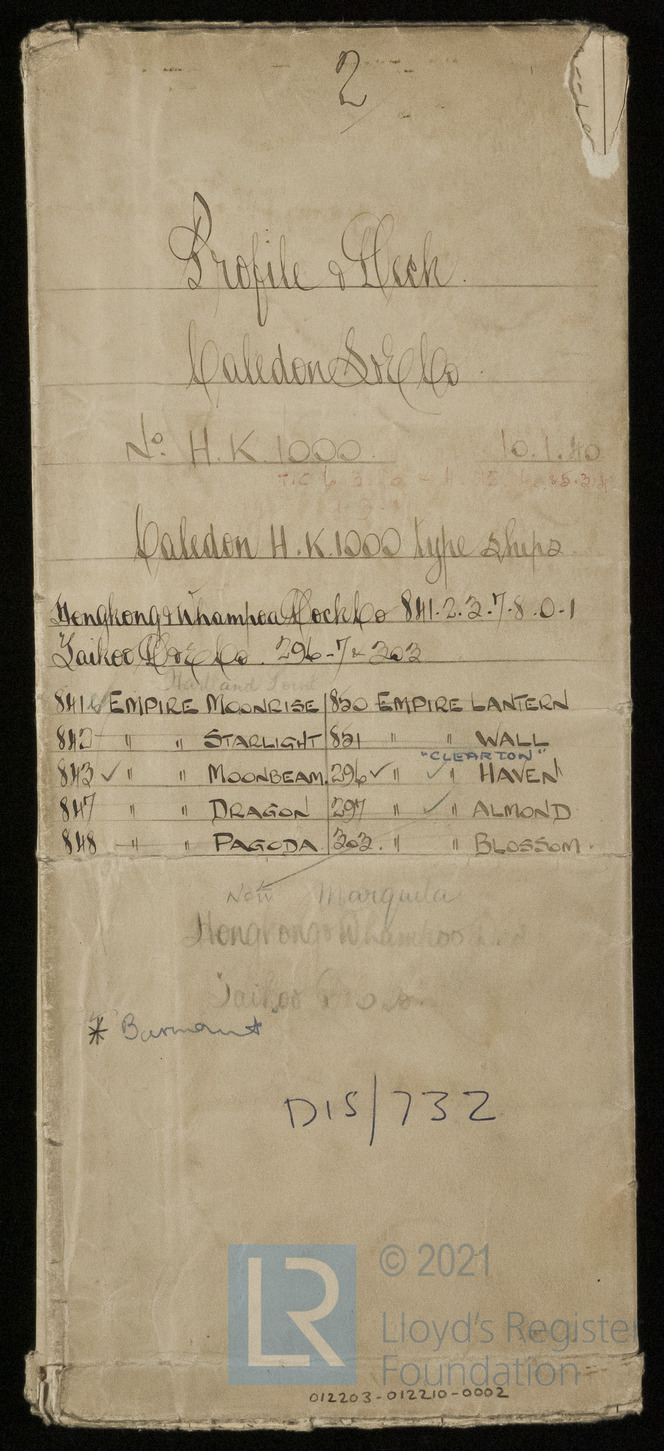 2
Profile & Deck.
Caledon S & E Co
No. H.K. 1000. 10.1.40
Caledon H.K. 1000 type ships
Hongkong & Whampoa Dock Co 841.2.3.7.8.0.1
Taikoo D & E Co. 296-7 & 303
841 ✓ EMPIRE MOONRISE 850 EMPIRE LANTERN
842 " " STARLIGHT 851 " " WALL
"CLEARTON"
843 ✓ " " MOONBEAM. 296 ✓ " ✓ " HAVEN
847 " " DRAGON 297 " ✓ " ALMOND
848 " " PAGODA 303. " " BLOSSOM.
Now Marquita
Hongkong & Whampoo
Taikoo
* "Barmount"
DIS/732
LR © 2021
Lloyd's Register
Foundation
012203-012210-0002